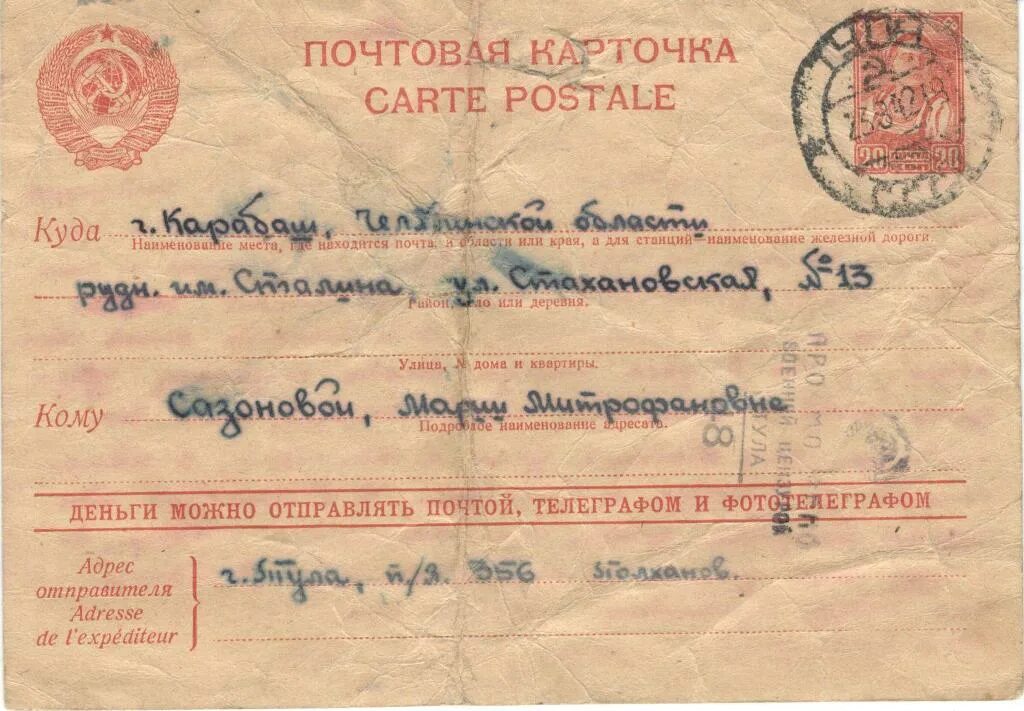 ПОЧТОВАЯ КАРТОЧКА
CARTE POSTALE
20 20
23 8 42
СССР
Куда г. Карабаш, Челябинской области
Наименование места, где находится почта, и области или края, а для станций наименование железной дороги.
рудн. им. Сталина ул. Стахановская, № 13
Район, село или деревня.
Улица, № дома и квартиры.
Кому Сазоновой, Марии Митрофановне
Подробное наименование адресата.
ВОЕННОЙ ЦЕНЗУРОЙ
ТУЛА
8
ДЕНЬГИ МОЖНО ОТПРАВЛЯТЬ ПОЧТОЙ, ТЕЛЕГРАФОМ И ФОТОТЕЛЕГРАФОМ
Адрес отправителя
Adresse de l'expéditeur
г. Тула, п/я. 356 Полханов.